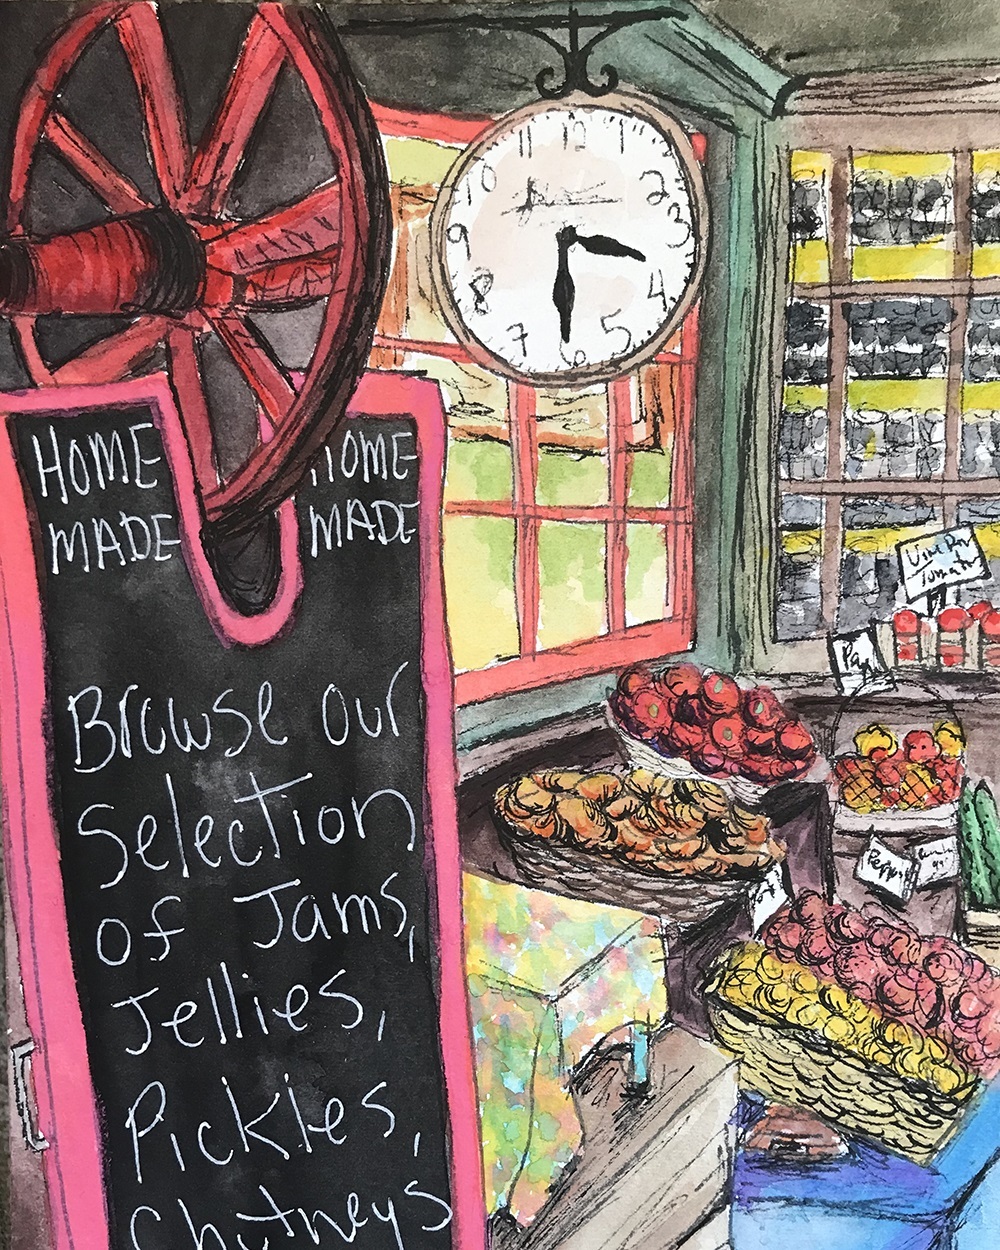 HOME
MADE
HOME
MADE
Browse our
Selection
of Jams,
Jellies,
Pickles,
Chutneys
11 12 1
10 2
9 3
8 4
7 6 5
Tomato